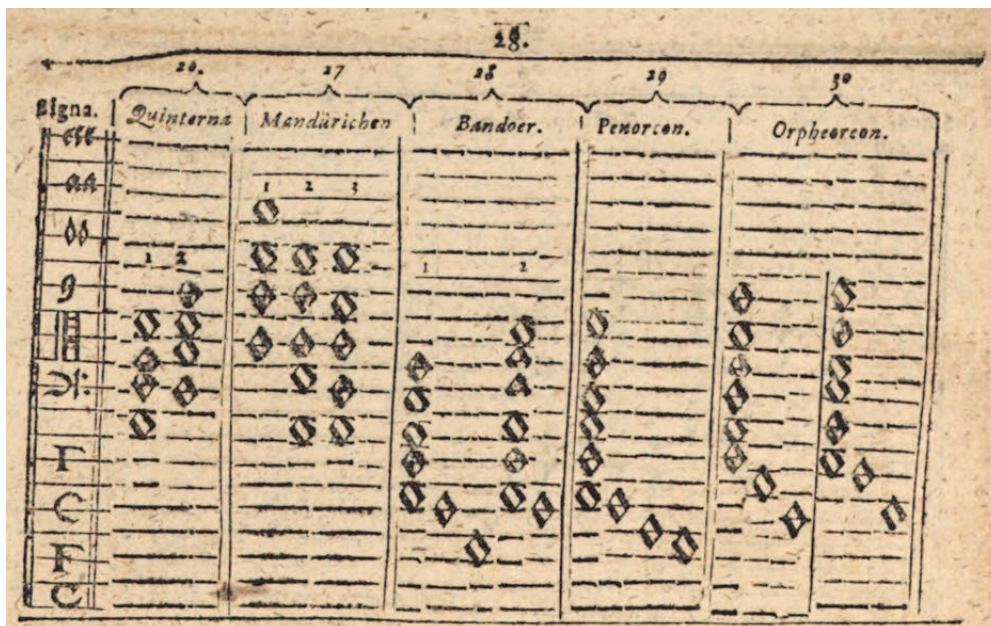 28.
26. 27 28 29 30
Signa. Quinterna Mandürichen Bandoer. Penorcon. Orpheoreon.
eee
aa
1 2 3
dd
1 2 1 2
g
Γ
C
F
C